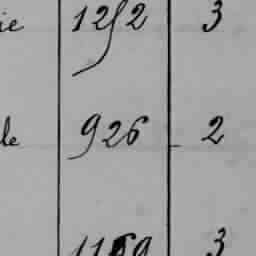 ie 1252 3
le 926 2
1169 3